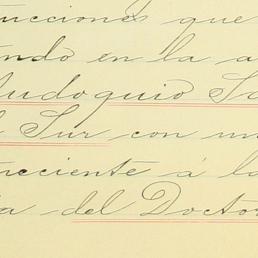 ucciones que
ndo en la a
udoquio Sa
l Sur con un
neciente á la
a del Docto